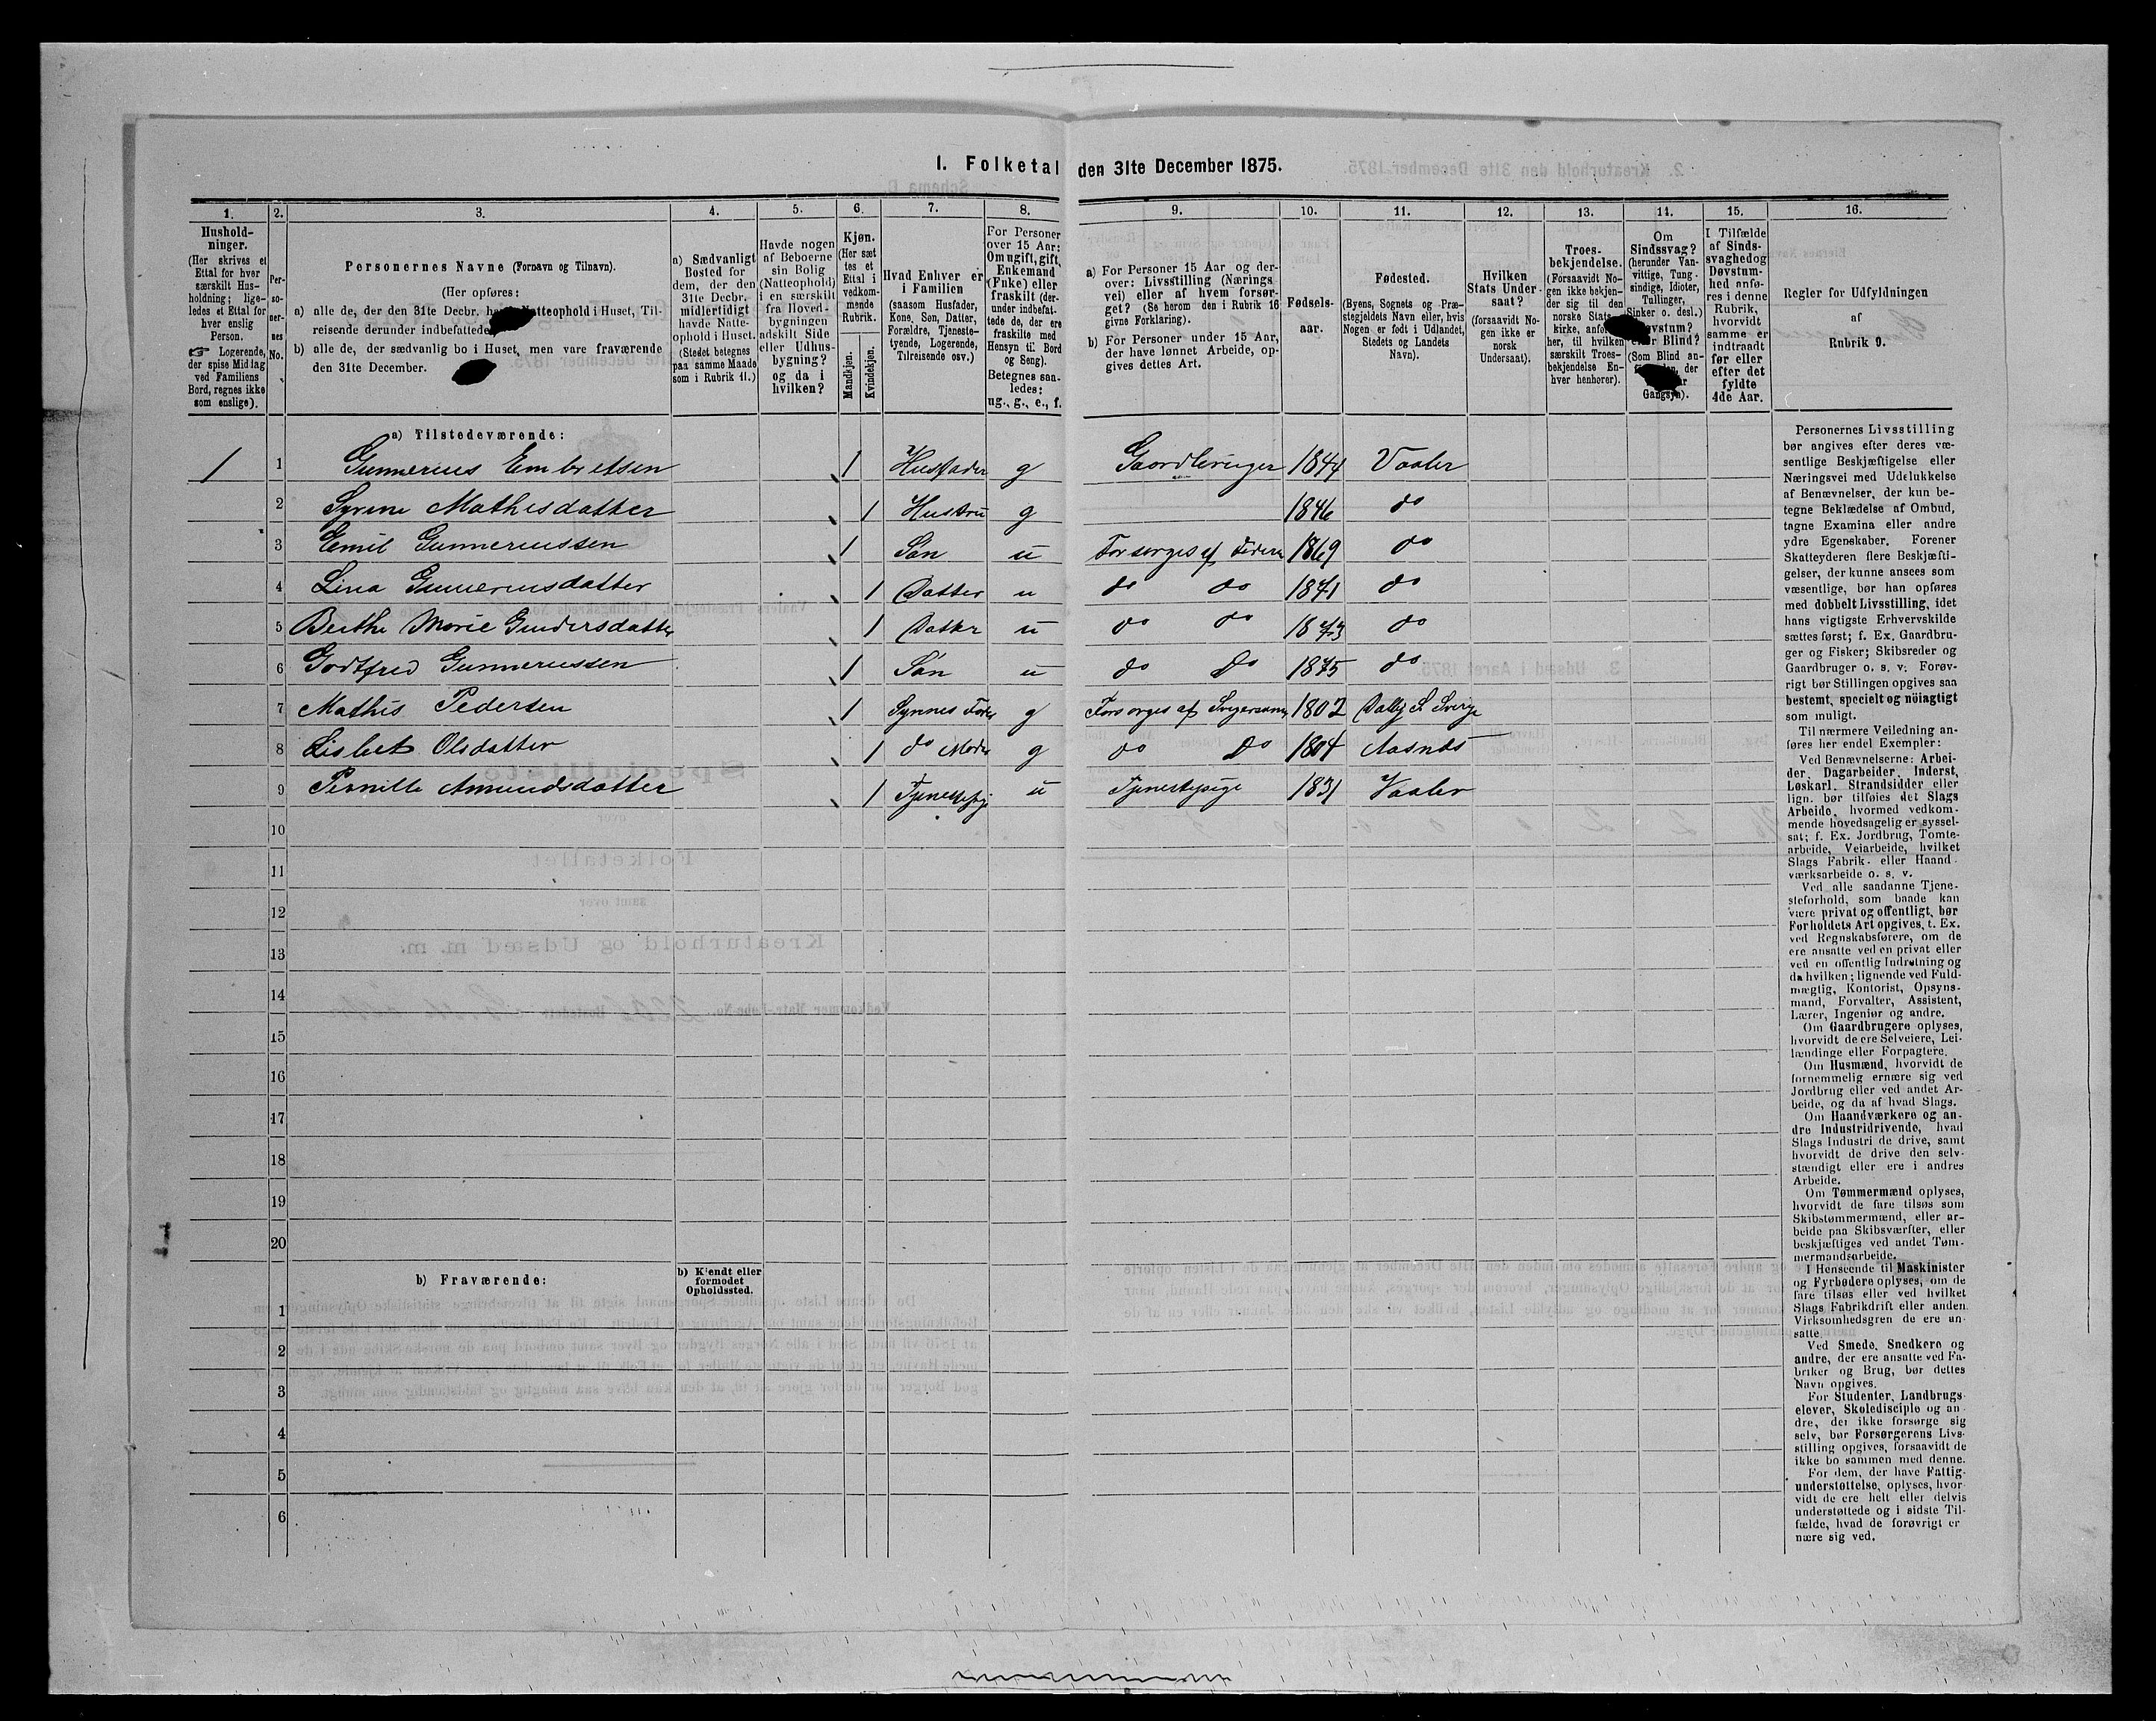 1. Folketal den 31te December 1875.
1. 2. 3. 4. 5. 6. 7. 8. 9. 10. 11. 12. 13. 14. 15. 16.
Hushold-
ninger.
(Her skrives et
Ettal for hver
særskilt Hus-
holdning; lige-
ledes et Ettal for
hver enslig
Person.
☞ Logerende,
der spise Middag
ved Familiens
Bord, regnes ikke
som enslige).
Per-
so-
ner-
nes
No.
Personernes Navne (Fornavn og Tilnavn).
(Her opføres:
a) alle de, der den 31te Decbr. Natteophold i Huset, Til-
reisende derunder indbefattede
b) alle de, der sædvanlig bo i Huset, men vare fraværende
den 31te December.
a) Sædvanligt
Bosted for
dem, der den
31te Decbr.
midlertidigt
havde Natte-
ophold i Huset.
(Stedet betegnes
paa samme Maade
som i Rubrik 11.)
Havde nogen
af Beboerne
sin Bolig
(Natteophold)
i en særskilt
fra Hoved-
bygningen
adskilt Side
eller Udhus-
bygning?
og da i
hvilken?
Kjøn.
(Her sæt
tes et
Ettal i
vedkom-
mende
Rubrik.
Mandkjøn.
Kvindekjøn.
Hvad Enhver er
i Familien
(saasom Husfader,
Kone, Søn, Datter,
Forældre, Tjeneste-
tyende, Logerende,
Tilreisende osv.)
For Personer
over 15 Aar:
Om ugift, gift,
Enkemand
(Enke) eller
fraskilt (der-
under indbefat-
tede de, der ere
fraskilte med
Hensyn til Bord
og Seng).
Betegnes saa-
ledes:
ug., g., e., f.
a) For Personer 15 Aar og der-
over: Livsstilling (Nærings
vei) eller af hvem forsør-
get? (Se herom den i Rubrik 16
givne Forklaring).
b) For Personer under 15 Aar,
der have lønnet Arbeide, op-
gives dettes Art.
Fødsels-
aar.
Fødested.
(Byens, Sognets og Præ-
stegjeldets Navn eller, hvis
Nogen er født i Udlandet,
Stedets og Landets
Navn).
Hvilken
Stats Under-
saat?
(forsaavidt No-
gen ikke er
norsk
Undersaat).
Troes-
bekjendelse.
(Forsaavidt No-
gen ikke bekjen-
der sig til den
norske Stats-
kirke, anfør
her, til hvilken
særskilt Troes-
bekjendelse En-
hver henhører).
Om
Sindssvag?
(herunder Van-
vittige, Tung-
sindige, Idioter,
Tullinger,
Sinker o. desl.)
Døvstum?
eller Blind?
(Som Blind an-
der
Gangsyn).
I Tilfælde
af Sinds-
svaghed og
Døvstum-
hed anfø-
res i denne
Rubrik,
hvorvidt
samme er
indtraadt
før eller
efter det
fyldte
4de Aar.
Regler for Udfyldningen
af
Rubrik 9.
a) Tilstedeværende:
1 1 Gunnerius Embretsen 1 Husfader g Gaardbruger 1844 Vaaler
2 Syrine Mathisdatter 1 Hustru g 1846 do
3 Emil Gunneriussen 1 Søn u Forsørges af Faderen 1869 do
4 Lina Gunneriusdatter 1 Datter u do do 1871 do
5 Berthe Marie Gundersdatter 1 Datter u do do 1873 do
6 Godtfred Gunneriussen 1 Søn u do Do 1875 do
7 Mathis Pedersen 1 g Forsørges af 1802 Dalby S. Sverige
8 Lisbet Olsdatter 1 do Moder g do Do 1804 Aasnes
9 Pernille Amundsdatter 1 Tjenestepige u Tjenestepige 1831 Vaaler
10
11
12
13
14
15
16
17
18
19
20
b) Fraværende:
b) Kjendt eller
formodet
Opholdssted.
1
2
3
4
5
6
Personernes Livsstilling
bør angives efter deres væ-
sentlige Beskjæftigelse eller
Næringsvei med Udelukkelse
af Benævnelser, der kun be-
tegne Beklædelse af Ombud,
tagne Examina eller andre
ydre Egenskaber. Forener
Skatteyderen flere Beskjæfti-
gelser, der kunne ansees som
væsentlige, bør han opføres
med dobbelt Livsstilling, idet
hans vigtigste Erhvervskilde
sættes først; f. Ex. Gaardbru-
ger og Fisker; Skibsreder og
Gaardbruger o. s. v. Forøv-
rigt bør Stillingen opgives saa
bestemt, specielt og nöiagtigt
som muligt.
Til nærmere Veiledning an-
føres her endel Exempler:
Ved Benævnelserne: Arbei-
der, Dagarbeider, Inderst,
Løskarl, Strandsidder eller
lign. bør tilføies det Slags
Arbeide, hvormed vedkom-
mende hovedsagelig er syssel-
sat; f. Ex. Jordbrug, Tomte-
arbeide, Veiarbeide, hvilket
Slags Fabrik- eller Haand-
værksarbeide o. s. v.
Ved alle saadanne Tjene-
steforhold, som baade kan
være privat og offentligt, bør
Forholdets Art opgives, t. Ex.
ved Regnskabsførere, om de
ere ansatte ved en privat eller
ved en offentlig Indretning og
da hvilken; lignende ved Fuld-
mægtig, Kontorist, Opsyns-
mand, Forvalter, Assistent,
Lærer, Ingeniør og andre.
Om Gaardbrugere oplyses,
hvorvidt de ere Selveiere, Lei-
lændinge eller Forpagtere.
Om Husmænd, hvorvidt de
fornemmelig ernære sig ved
Jordbrug eller ved andet Ar-
beide, og da af hvad Slags.
Om Haandværkere og an-
dre Industridrivende, hvad
Slags Industri de drive, samt
hvorvidt de drive den selv-
stændigt eller ere i andres
Arbeide.
Om Tømmermænd oplyses,
hvorvidt de fare tilsøs som
Skibstømmermænd, eller ar-
beide paa Skibsværfter, eller
beskjæftiges ved andet Tøm-
mermandsarbeide.
I Henseende til Maskinister
og Fyrbødere oplyses, om de
fare tilsøs eller ved hvilket
Slags Fabrikdrift eller anden
Virksomhedsgren de ere an-
satte.
Ved Smede, Snedkere og
andre, der ere ansatte ved Fa-
briker og Brug, bør dettes
Navn opgives.
For Studenter, Landbrugs-
elever, Skoledisciple og an-
dre, der ikke forsørge sig
selv, bør Forsørgerens Livs-
stilling opgives, forsaavidt de
ikke bo sammen med denne.
For dem, der have Fattig-
understøttelse, oplyses, hvor-
vidt de ere helt eller delvis
understøttede og i sidste Til-
fælde, hvad de forøvrigt er-
nære sig ved.